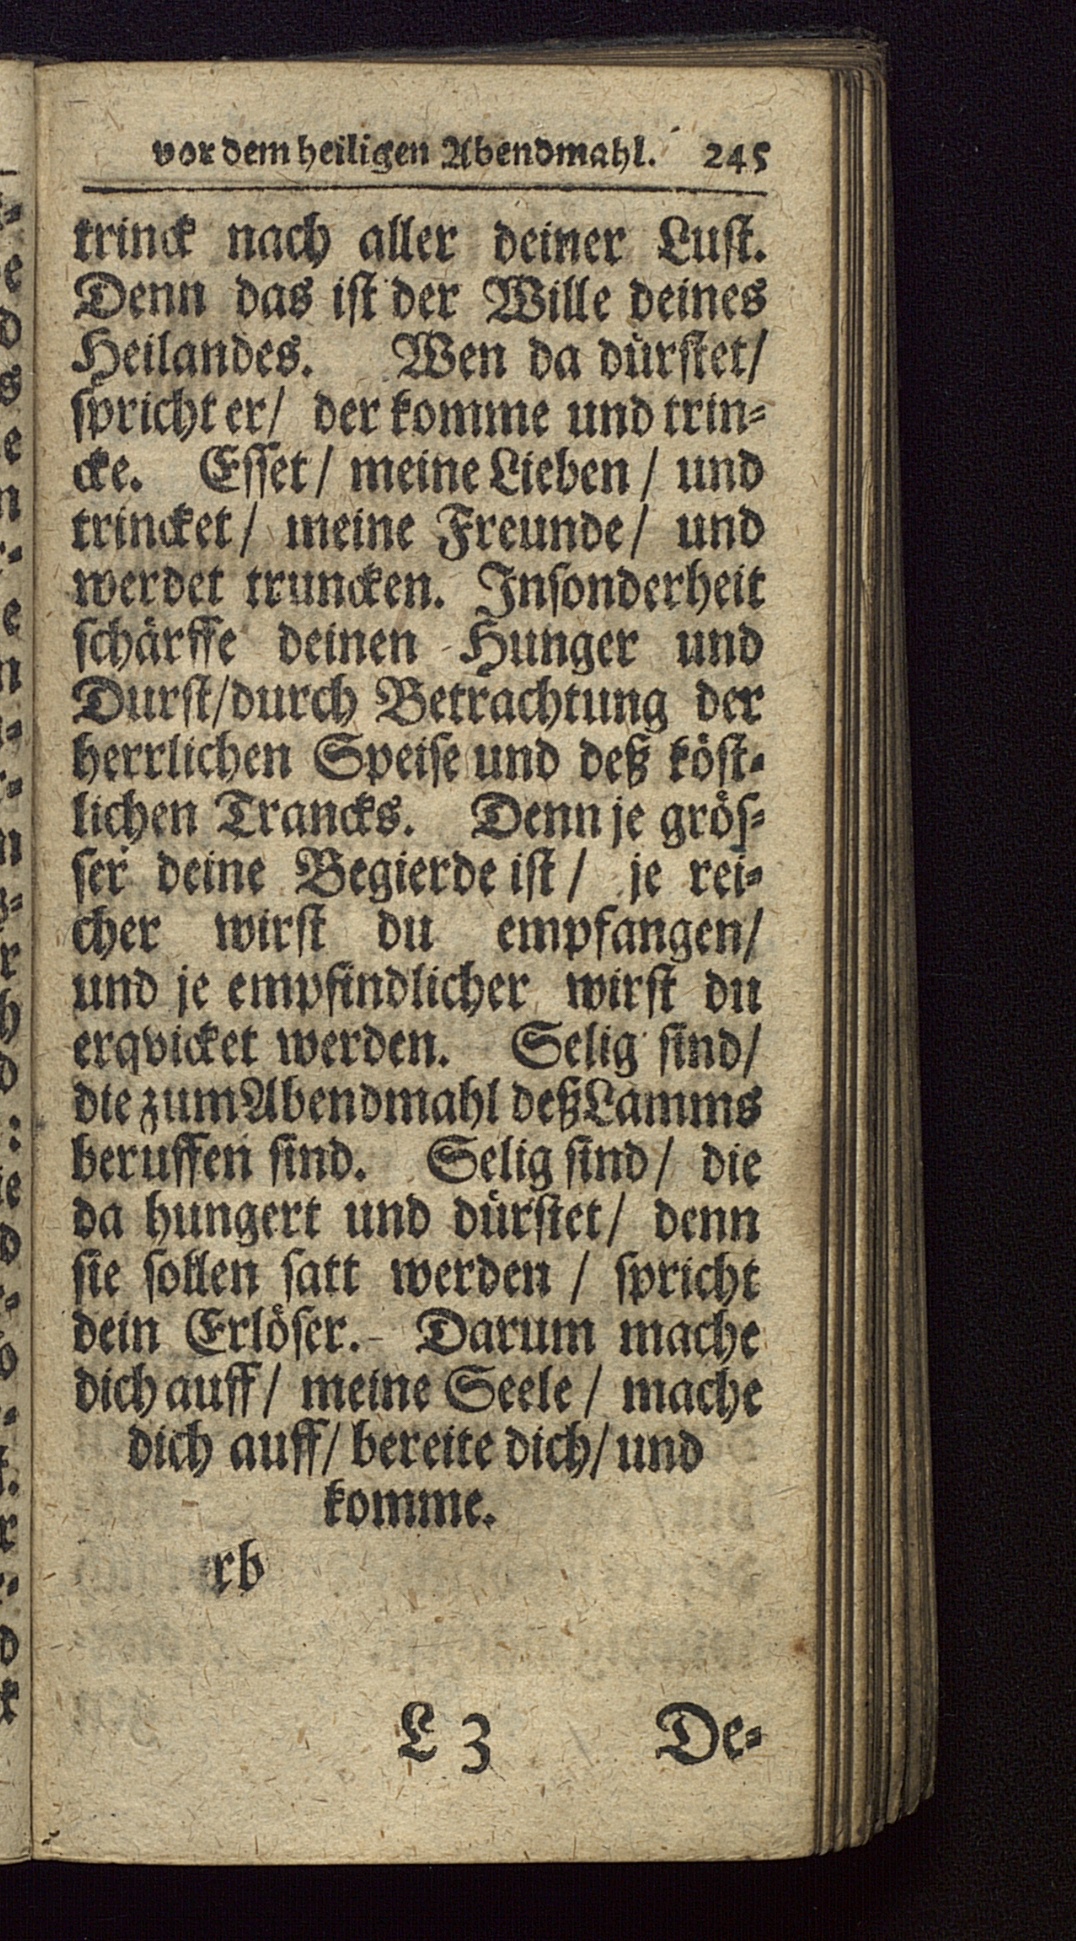 vor dem heiligen Abendmahl. 245
trinck nach aller deiner Lust.
Denn das ist der Wille deines
Heilandes. Wen da dürstet/
spricht er/ der komme und trin-
cke. Esset/ meine Lieben/ und
trincket/ meine Freunde/ und
werdet truncken. Insonderheit
schärffe deinen Hunger und
Durst/durch Betrachtung der
herrlichen Speise und deß köst-
lichen Trancks. Denn je grös-
ser deine Begierde ist/ je rei-
cher wirst du empfangen/
und je empfindlicher wirst du
erqvicket werden. Selig sind/
die zum Abendmahl deß Lamms
beruffen sind. Selig sind/ die
da hungert und dürstet/ denn
sie sollen satt werden/ spricht
dein Erlöser. Darum mache
dich auff/ meine Seele/ mache
dich auff/ bereite dich/ und
komme.
rb
L 3 De-